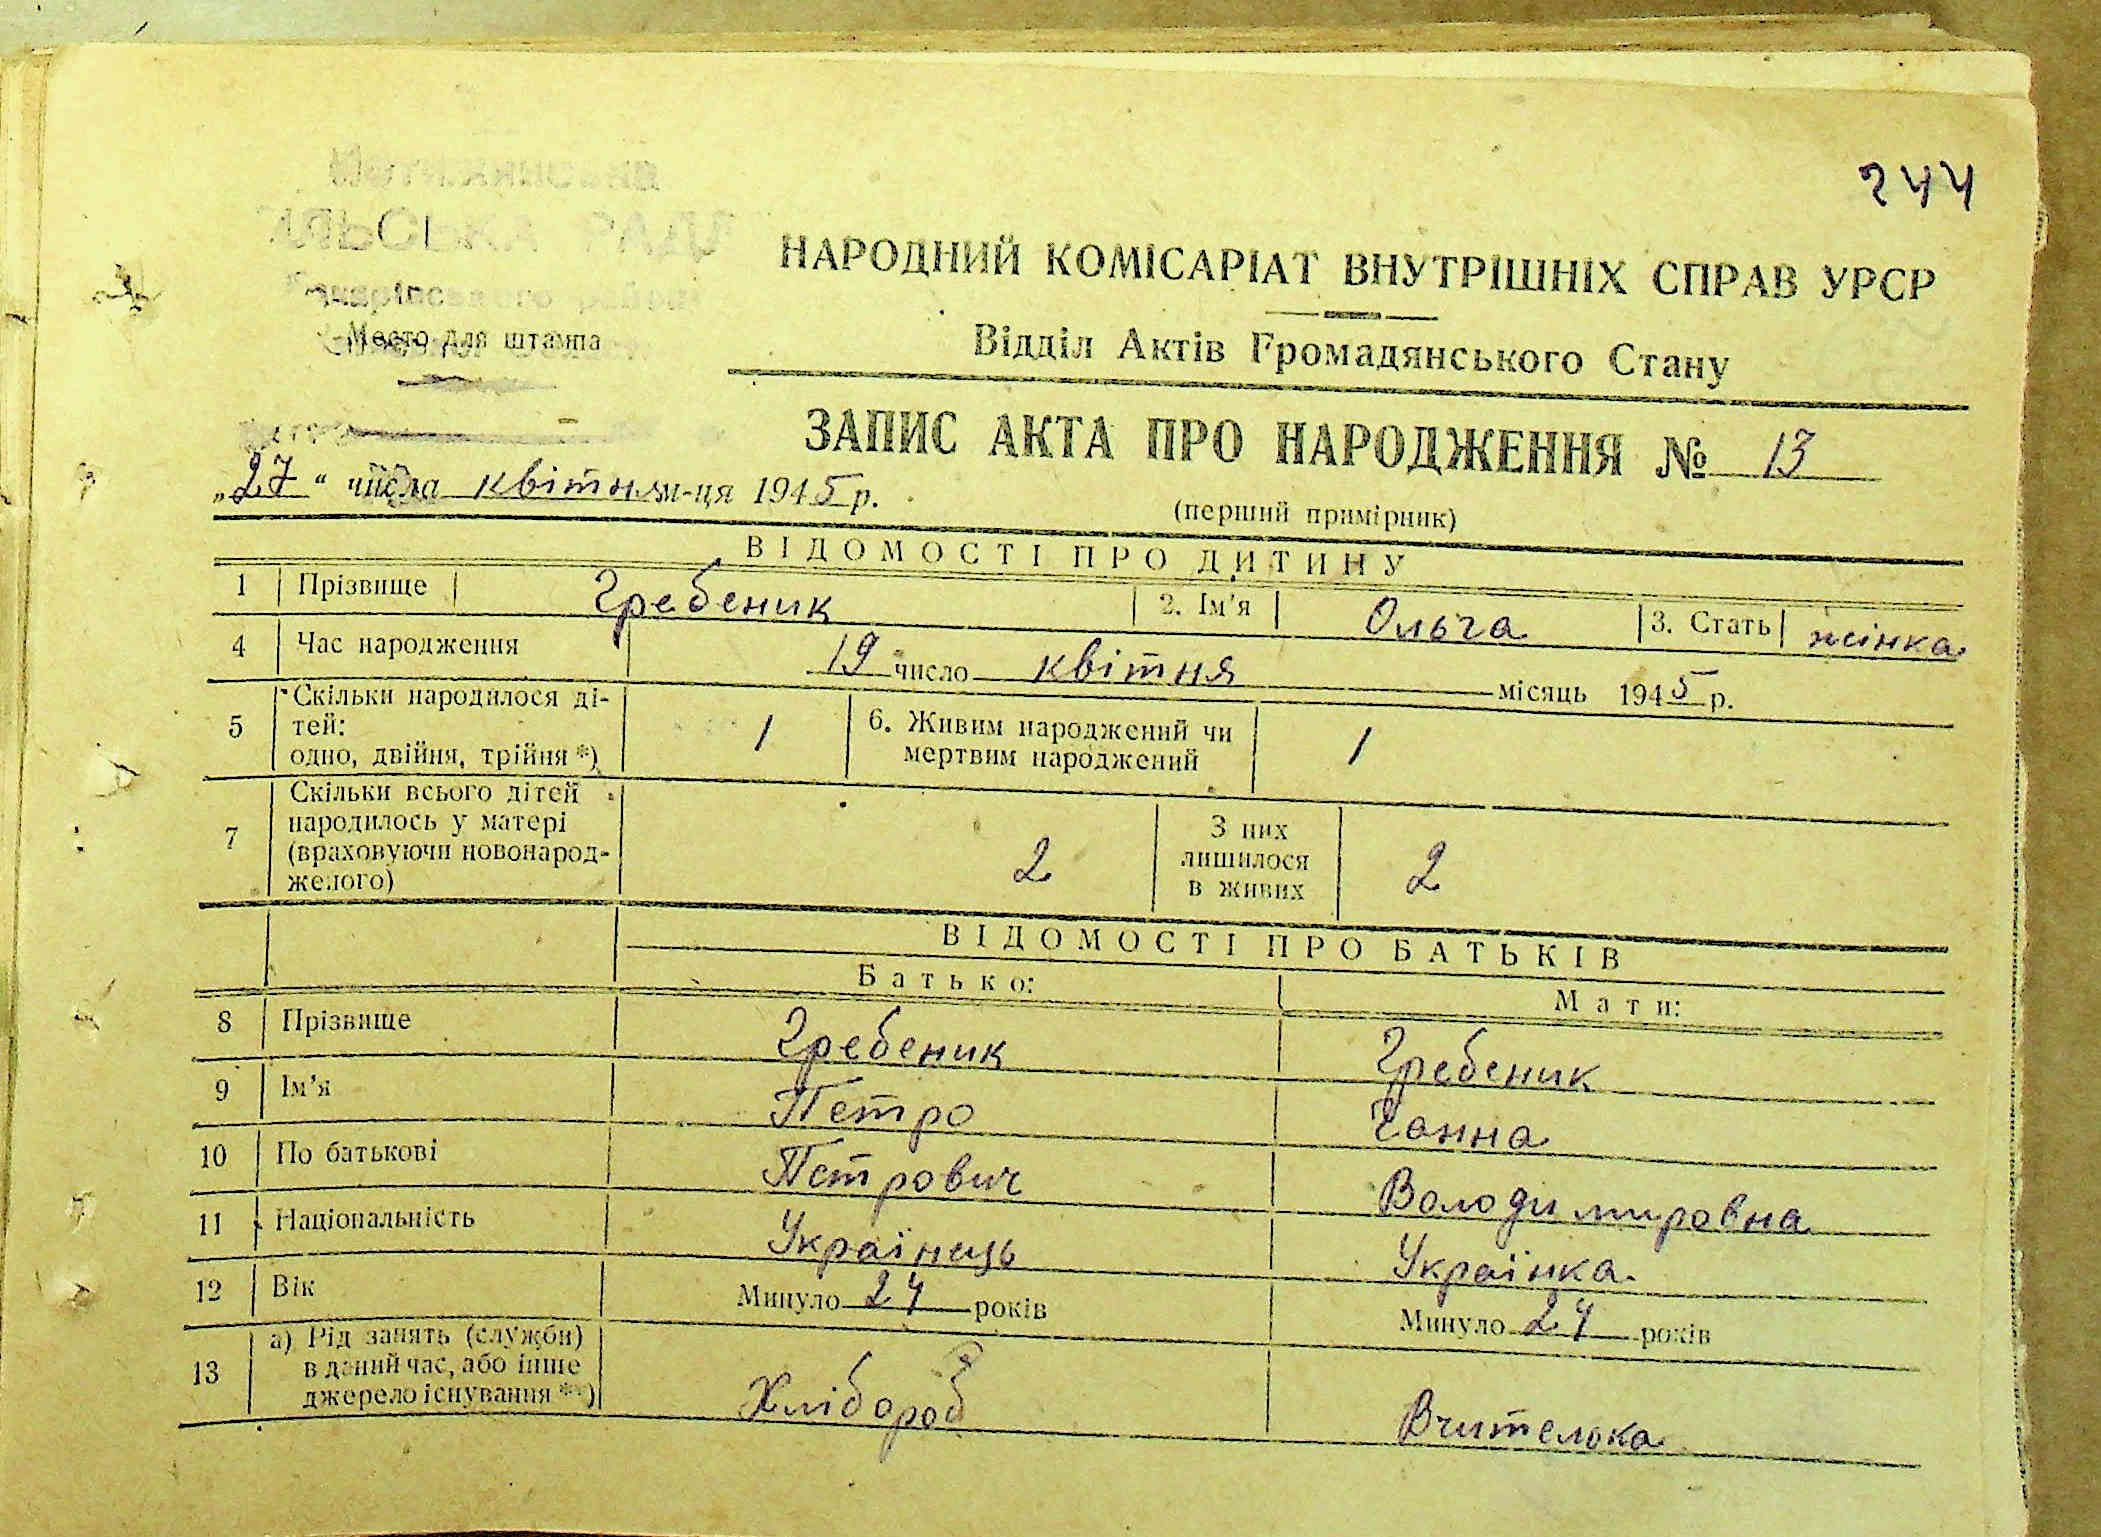 244
НАРОДНИЙ КОМІСАРІАТ ВНУТРІШНІХ СПРАВ УРСР
Место для штампа
Відділ Актів Громадянського Стану
ЗАПИС АКТА ПРО НАРОДЖЕННЯ № 13
„27“ числа квітня м-ця 1945 р.
(перший примірник)
ВІДОМОСТІ ПРО ДИТИНУ
1 Прізвище Гребеник 2. Ім'я Ольга 3. Стать жінка
4 Час народження 19 число квітня місяць 1945 р.
5 Скільки народилося ді-
тей:
одно, двійня, трійня *)
1
6. Живим народжений чи
мертвим народжений
1
7 Скільки всього дітей
народилось у матері
(враховуючи новонарод-
желого)
2
З них
лишилося
в живих
2
ВІДОМОСТІ ПРО БАТЬКІВ
Батько: Мати:
8 Прізвище Гребеник Гребеник
9 Ім'я Петро Ганна
10 По батькові Петрович Володимировна
11 Національність Українець Українка
12 Вік Минуло 24 років Минуло 24 років
13 а) Рід занять (служби)
в даний час, або інше
джерело існування **)
Хлібороб Вчителька